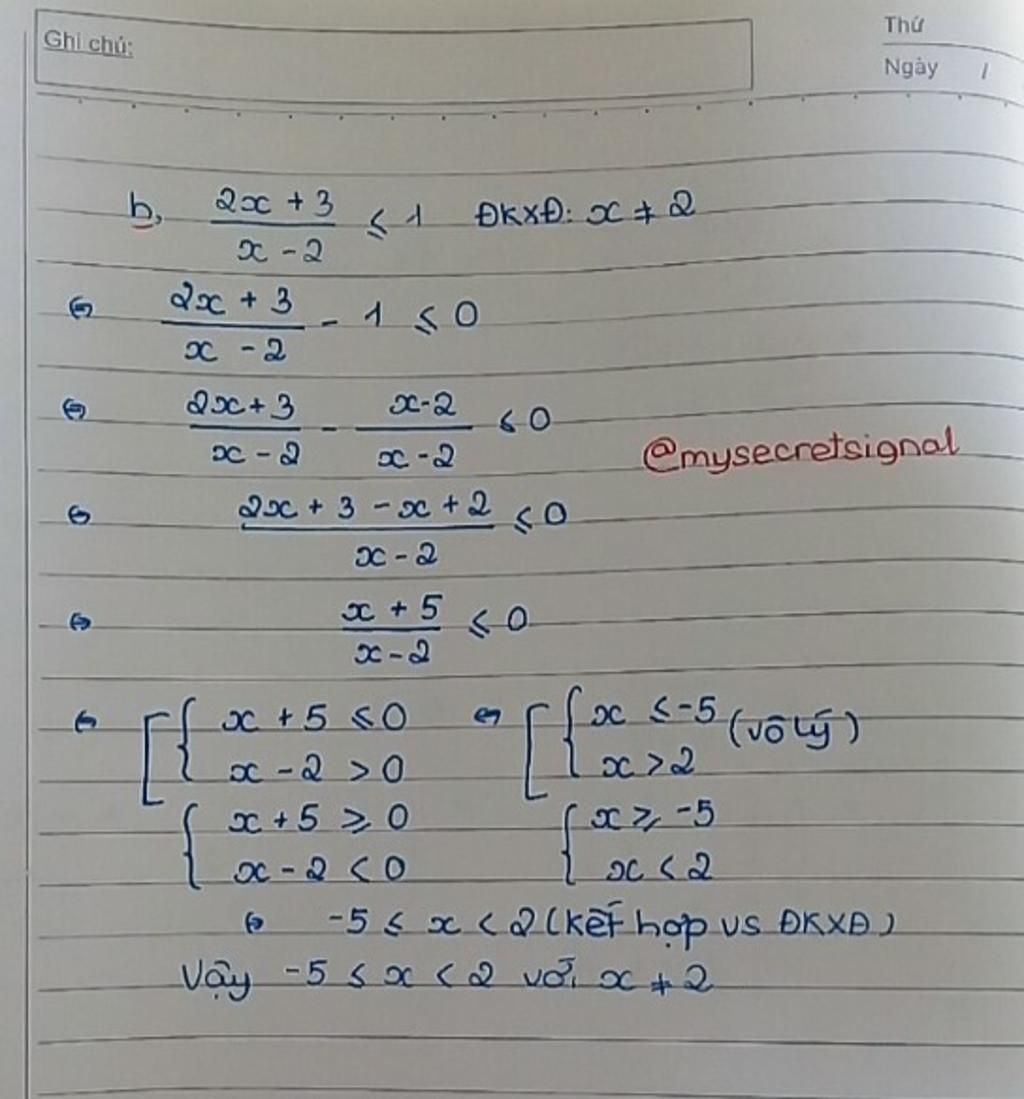 Ghi chú:
Thứ
Ngày /
b, (2x + 3)/(x - 2) ≤ 1 ĐKXĐ: x ≠ 2
⇔ (2x + 3)/(x - 2) - 1 ≤ 0
⇔ (2x + 3)/(x - 2) - (x - 2)/(x - 2) ≤ 0
@mysecretsignal
⇔ (2x + 3 - x + 2)/(x - 2) ≤ 0
⇔ (x + 5)/(x - 2) ≤ 0
⇔ [ { x + 5 ≤ 0 ⇔ [ { x ≤ -5 (vô lý)
x - 2 > 0 x > 2
{ x + 5 ≥ 0 { x ≥ -5
x - 2 < 0 x < 2
⇔ -5 ≤ x < 2 (kết hợp vs ĐKXĐ)
Vậy -5 ≤ x < 2 với x ≠ 2